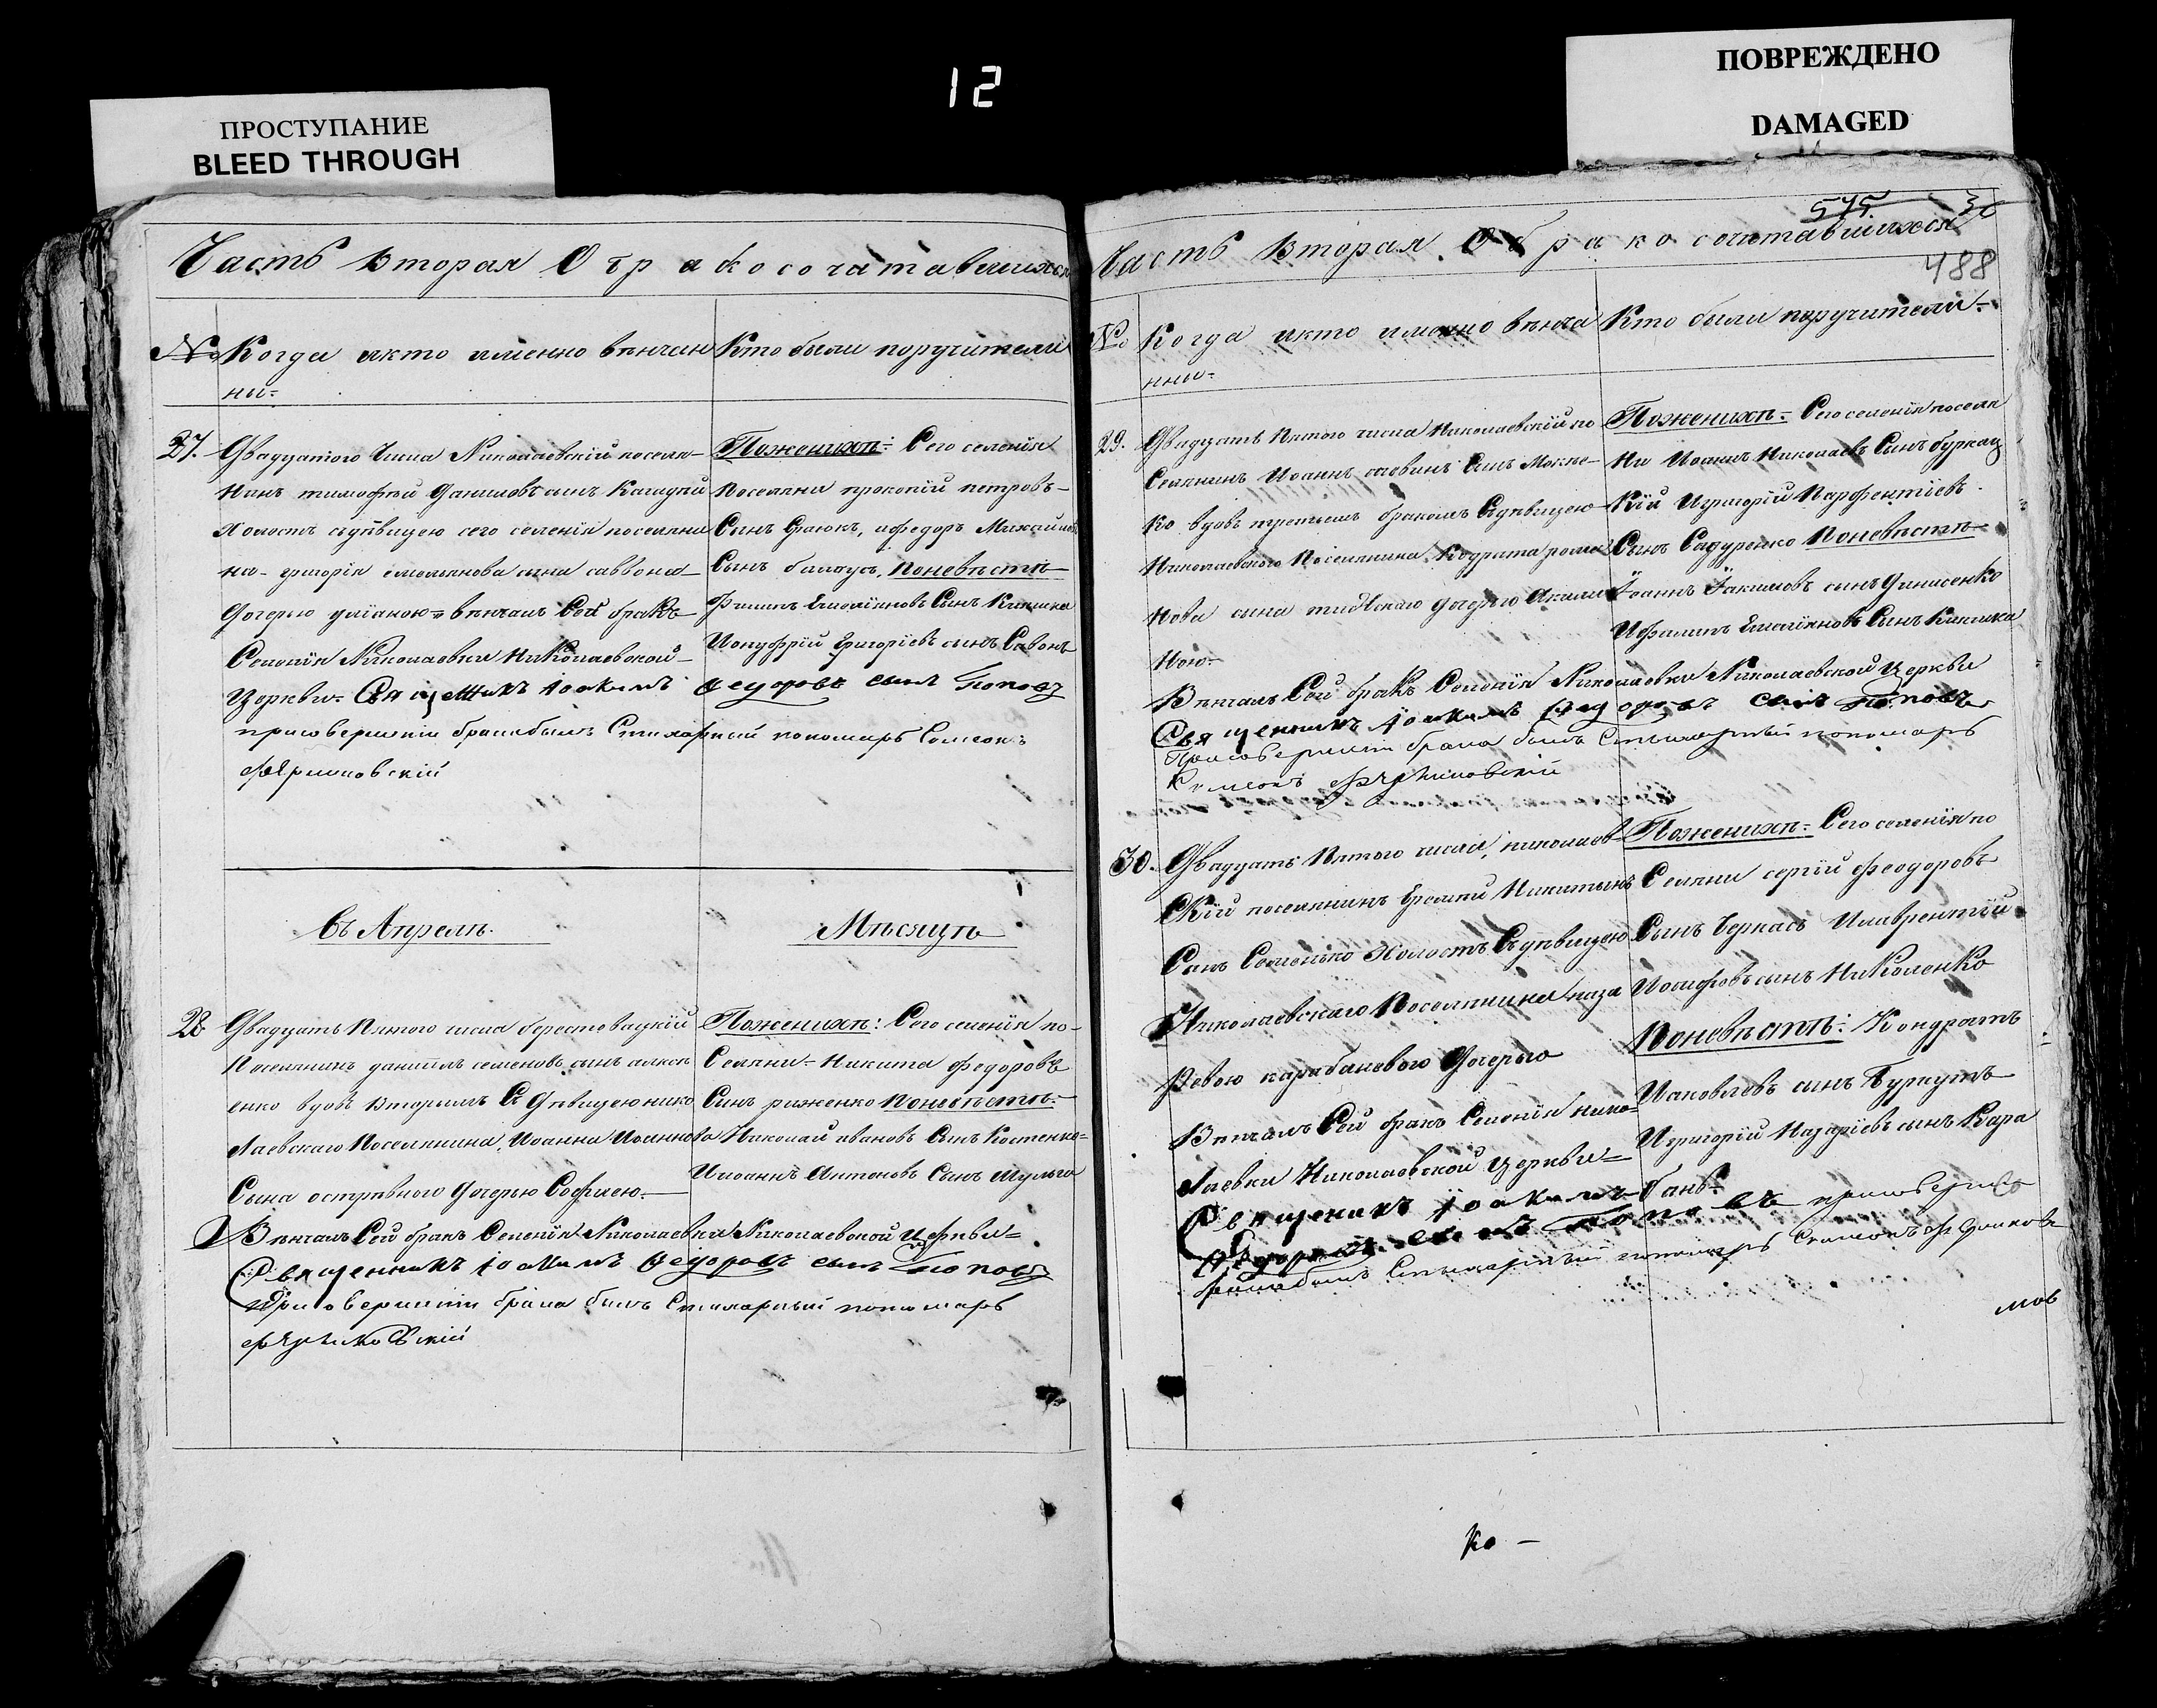 12
ПРОСТУПАНИЕ
BLEED THROUGH
ПОВРЕЖДЕНО
DAMAGED
Часть Вторая О бракосочатавшихся
№ Когда икто именно венчан
ны=
Кто были поручители
27. Двадцатого Числа Николаевскій поселя-
нинъ тимофей Даниловъ сынъ
Холостъ сдѣвицею сего селенія поселяни
на- григорія емельянова сына саввона
Дочерью уліаною= вѣнчалъ Сей бракъ
Селенія Николаевки Николаевской
Церкви. Священникъ Іоакимъ Федоровъ сынъ Поповъ
присовершеніи брака былъ Стихарный пономарь Симеонъ
Пожениху: Сего селенія
Поселяни прокопій петровъ-
Сынъ ифедоръ Михайловъ
Сынъ Поневѣсте
Филипъ Емеліяновъ Сынъ Кикишка
Ионуфрій Григоріевъ сынъ Савонъ
Въ Апрелѣ.
Мѣсяцѣ
28 Двадцать Пятого числа берестовацкій
Поселянинъ даніилъ семеновъ сынъ алексе
енко вдовъ Вторымъ Сдѣвицею нико
лаевскаго Поселянина, Иоанна Иоаннова
Сына островного Дочерью Софиею.
Вѣнчалъ Сей бракъ Селенія Николаевки Николаевской Церкви=
Священникъ Іоакимъ Федоровъ сынъ Поповъ
При совершеніи брака былъ Стихарный пономарь
Пожениху: Сего селенія по-
Селяни- Никита Федоровъ
Сынъ риженко Поневѣсте:
Николай ивановъ Сынъ Костенко=
Иіоаннъ Антоновъ Сынъ Мулыга
545 30
488
Часть Вторая О бракосочитавшихся
№ Когда икто именно вѣнча
нны=
Кто были поручители=
29. Двадцать Пятого числа Николаевскій по
Селянинъ Иоаннъ саввинъ Сынъ Мокие-
ко вдовъ третьимъ бракомъ Сдѣвицею
Николаевского Поселянина Кодрата рома
нова сына Дочерью Акили
ною=
Вѣнчалъ Сей бракъ Селенія Николаевки Николаевской Церкви
Священникъ Іоакимъ Федоровъ сынъ Поповъ
Присовершеніи брака былъ Стихарный пономарь
Симеонъ
Пожениху= Сего селенія поселя
Ни Иоанъ Николаевъ Сынъ буркац
Кій Игригорій Парфентіевъ
Сынъ Сидуренко Поневѣсте
Іоаннъ Іакимовъ сынъ Динисенко
Ифилипъ Емеліяновъ Сынъ Кикишка
30. Двадцать Пятого числа, николаев
Скій поселянинъ Еремей Никитинъ
Сынъ Семенько Холостъ Сдѣвицею
Николаевскаго Поселянина наза
ревою карабаневого Дочерью
Вѣнчалъ Сей бракъ Селенія нико=
лаевки Николаевской Церкви=
Священикъ Іоакимъ
Федоровъ сынъ Поповъ присоверше
брака былъ Стихарный пономарь Симеонъ
Пожениху= Сего селенія по
Селяни сергій Феодоровъ
Сынъ Черкасъ Илаврентій
Иосифовъ сынъ Николенко
Поневѣсте: Кондратъ
Иаковлевъ сынъ Буркутъ
Игригорій Назаріевъ сынъ Кара
бань=
Ко -